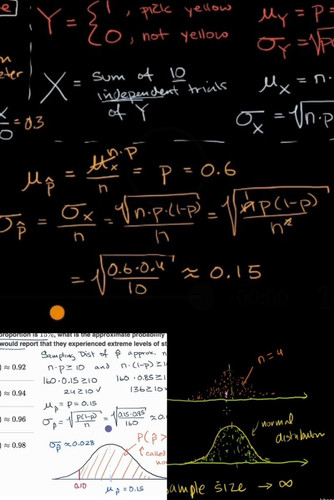 Y = { 1, pick yellow
0, not yellow
μ_Y = p =
σ_Y = √p(
X = sum of 10
independent trials
of Y
= 0.3
μ_x = n.
σ_x = √n·p
μ_p̂ = μ_x n·p / n = p = 0.6
σ_p̂ = σ_x / n = √n·p·(1-p) / n = √np(1-p) / n²
= √0.6·0.4 / 10 ≈ 0.15
proportion is 15%, what is the approximate probability
would report that they experienced extreme levels of st
≈ 0.92
≈ 0.94
≈ 0.96
≈ 0.98
Sampling Dist of p̂ approx. n
n·p ≥ 10 and n·(1-p) ≥ 1
160·0.15 ≥ 10 160·0.85 ≥ 1
24 ≥ 10 ✓ 136 ≥ 10
μ_p̂ = p = 0.15
σ_p̂ = √p(1-p) / n = √0.15·0.85 / 160 ≈
σ_p̂ ≈ 0.028
P(p̂ >
0.10
μ_p̂ = 0.15
n = 4
normal
distribution
sample size → ∞